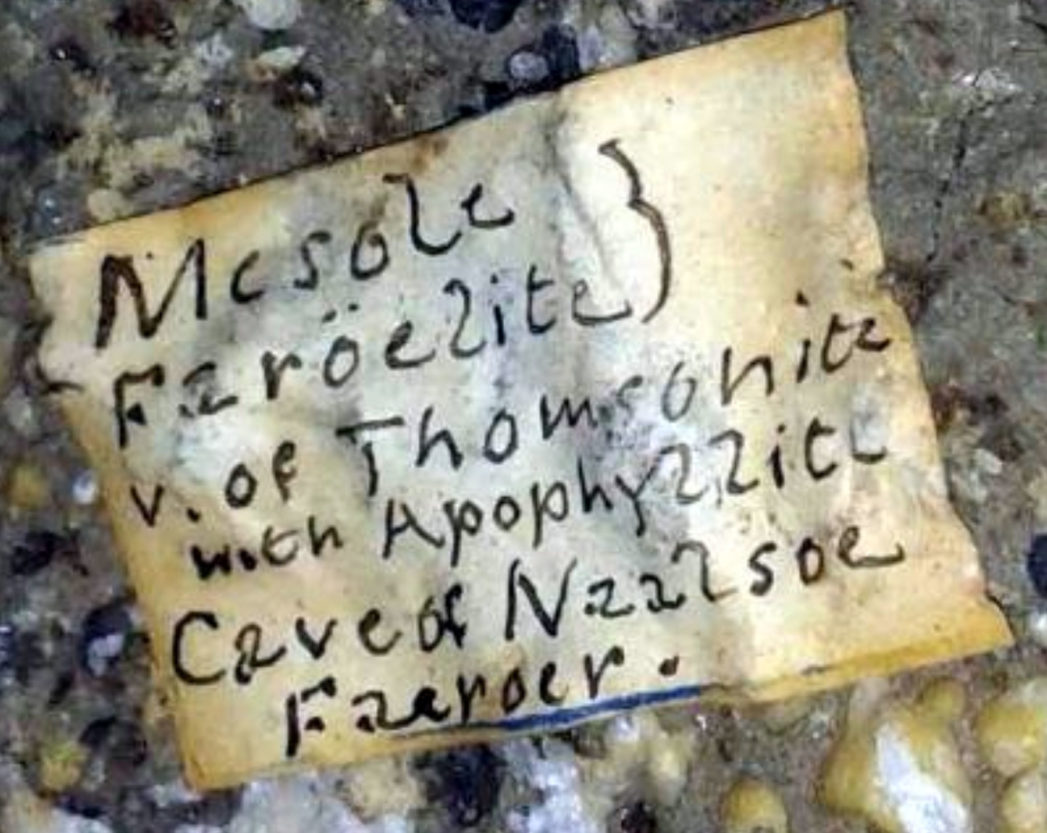 Mesole }
Faröelite }
v. of Thomsonite
with Apophyllite
Cave of Naalsoe
Faeroer.